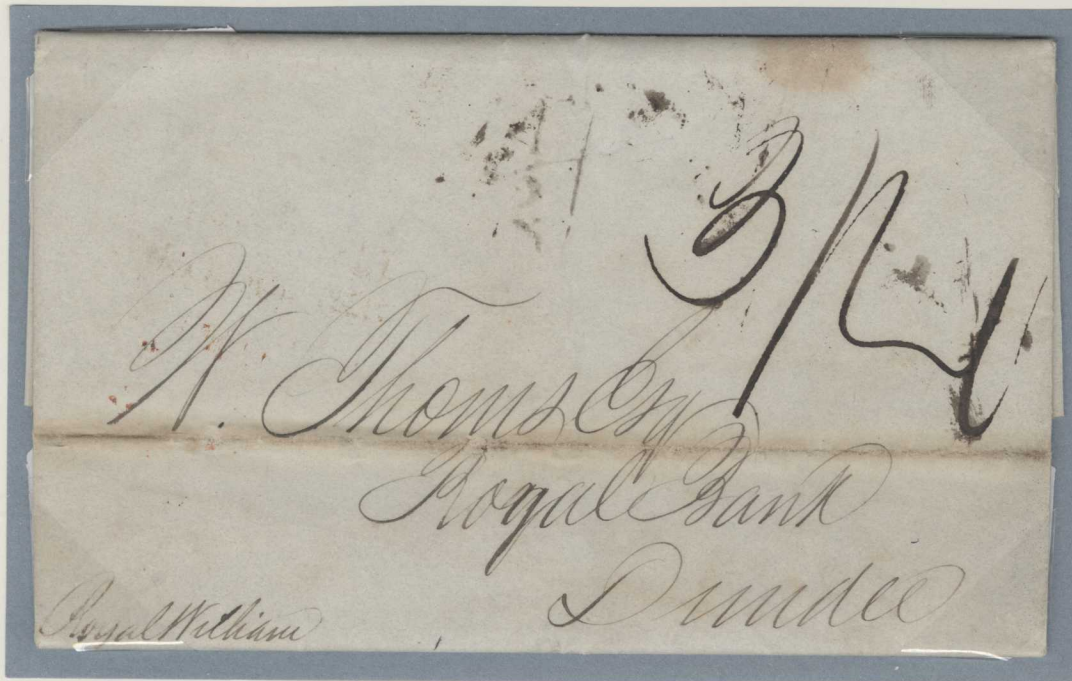 3/4
W. Thoms Esq
Royal Bank
Dundee
Royal William